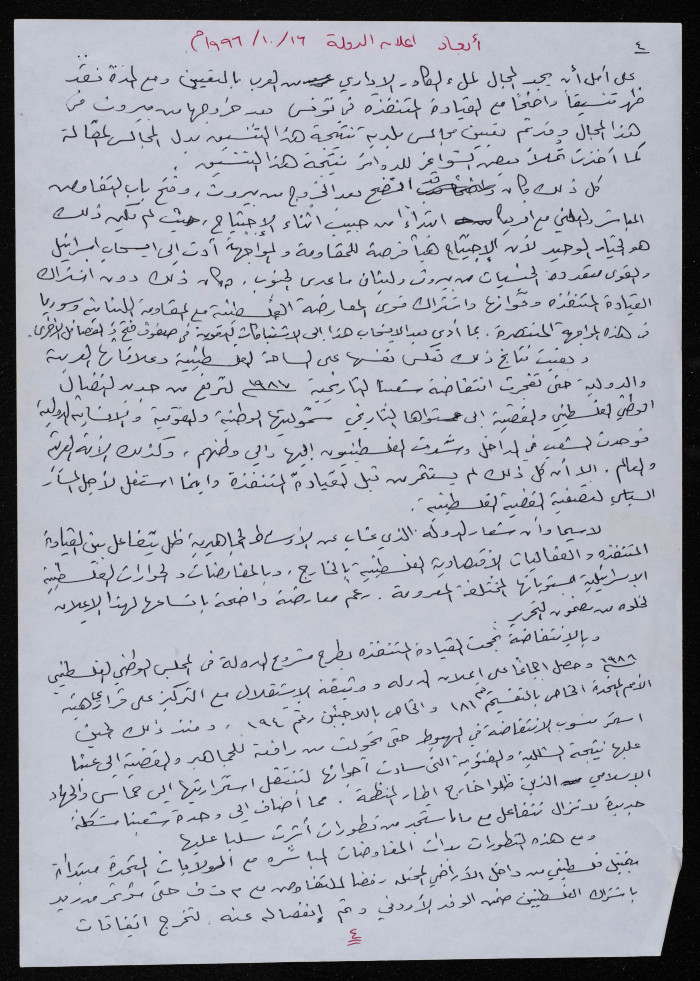 ٤
أبعاد اعلان الدولة ١٦/١٠/١٩٩٦م
على أمل أن يجد المجال لملء الكادر الاداري من العرب بالتعيين ومع المدة فقد
ظهر تنسيقاً واضحاً مع القيادة المتنفذة في تونس بعد خروجها من بيروت في
هذا المجال وقد تم تعيين مجالس بلدية نتيجة هذا التنسيق بدل المجالس المقالة
كما أخذت تملأ بعض الشواغر للدوائر نتيجة هذا التنسيق.
كل ذلك كان قد اتضح بعد الخروج من بيروت، وفتح باب التفاوض
المباشر والعلني مع امريكا ابتداءً من حبيب اثناء الإجتياح، حيث لم يكن ذلك
هو الخيار الوحيد لأن الإجتياح هيأ فرصة للمقاومة والمواجهة أدت إلى انسحاب اسرائيل
والقوى متعددة الجنسيات من بيروت ولبنان ما عدى الجنوب، وكان ذلك دون اشتراك
القيادة المتنفذة وقواتها واشتراك قوى المعارضة الفلسطينية مع المقاومة اللبنانية وسوريا
في هذه المواجهة المنتصرة. مما أدى بعد الانسحاب هذا الى الانشقاقات القوية في صفوف فتح و الفصائل الأخرى.
وبقيت نتائج ذلك تعكس نفسها على الساحة الفلسطينية وعلاقاتها العربية
والدولية حتى تفجرت انتفاضة شعبنا التاريخية ١٩٨٧ لترفع من جديد النضال
الوطني الفلسطيني والقضية الى مستواها التاريخي شموليتها الوطنية والقومية والانسانية الدولية
فوحدت الشعب في الداخل وشدت الفلسطينيون إليها وإلى وطنهم، وكذلك الأمة العربية
والعالم. الا أن كل ذلك لم يستثمر من قبل القيادة المتنفذة وإنما استغل لأجل المسار
السياسي لتصفية القضية الفلسطينية.
لا سيما وأن شعار الدولة الذي غاب عن الأوساط الجماهيرية ظل يتفاعل بين القيادة
المتنفذة و الفعاليات الاقتصادية الفلسطينية بالخارج، وبالمفاوضات والحوارات الفلسطينية
الاسرائيلية بمستوياتها المختلفة المعروفة. رغم معارضة واضحة باتساعها لهذا الإعلان
لخلوه من مضمون التحرير
وبالإنتفاضة نجحت القيادة المتنفذة بطرح مشروع الدولة في المجلس الوطني الفلسطيني
١٩٨٨ وحصل اجماعاً على إعلان الدولة ووثيقة الإستقلال مع التركيز على قراري هيئة
الأمم المتحدة الخاص بالتقسيم رقم ١٨١ والخاص باللاجئين رقم ١٩٤، ومنذ ذلك الحين
استمر منسوب الإنتفاضة في الهبوط حتى تحولت من رافعة للجماهير والقضية إلى عبئاً
عليها نتيجة السلبية والفئوية التي سادت أجوائها لتنتقل استمراريتها إلى حماس والجهاد
الاسلامي الذين ظلوا خارج اطار المنظمة. مما أضاف إلى وحدة شعبنا مشكلة
جديدة لا تزال تتفاعل مع ما استجد من تطورات أثرت سلبا عليها
ومع هذه التطورات بدأت المفاوضات المباشرة مع الولايات المتحدة مبتدأة
بتمثيل فلسطيني من داخل الأراضي المحتلة رفضا للتفاوض مع م ت ف حتى مؤتمر مدريد
باشتراك الفلسطينيين ضمن الوفد الأردني وتم إنفصاله عنه. لتخرج اتفاقات
٤